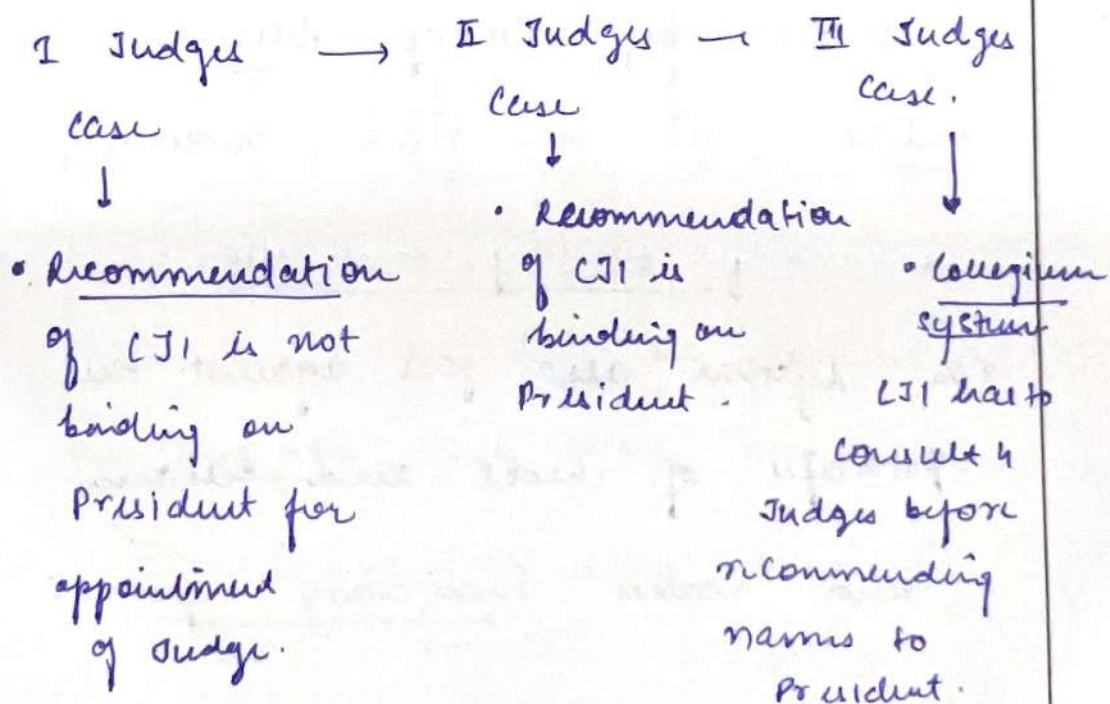 I Judges → II Judges — III Judges
case
↓
• Recommendation
of CJI is not
binding on
President for
appointment
of Judge.
case
↓
• Recommendation
of CJI is
binding on
President.
case.
↓
• Collegium
system
CJI has to
consult 4
Judges before
recommending
names to
President.